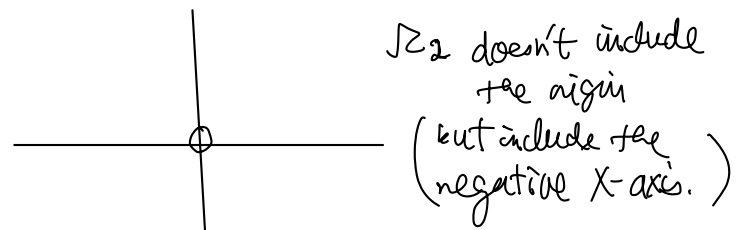 Ω2 doesn't include
the origin
(but include the
negative X-axis.)